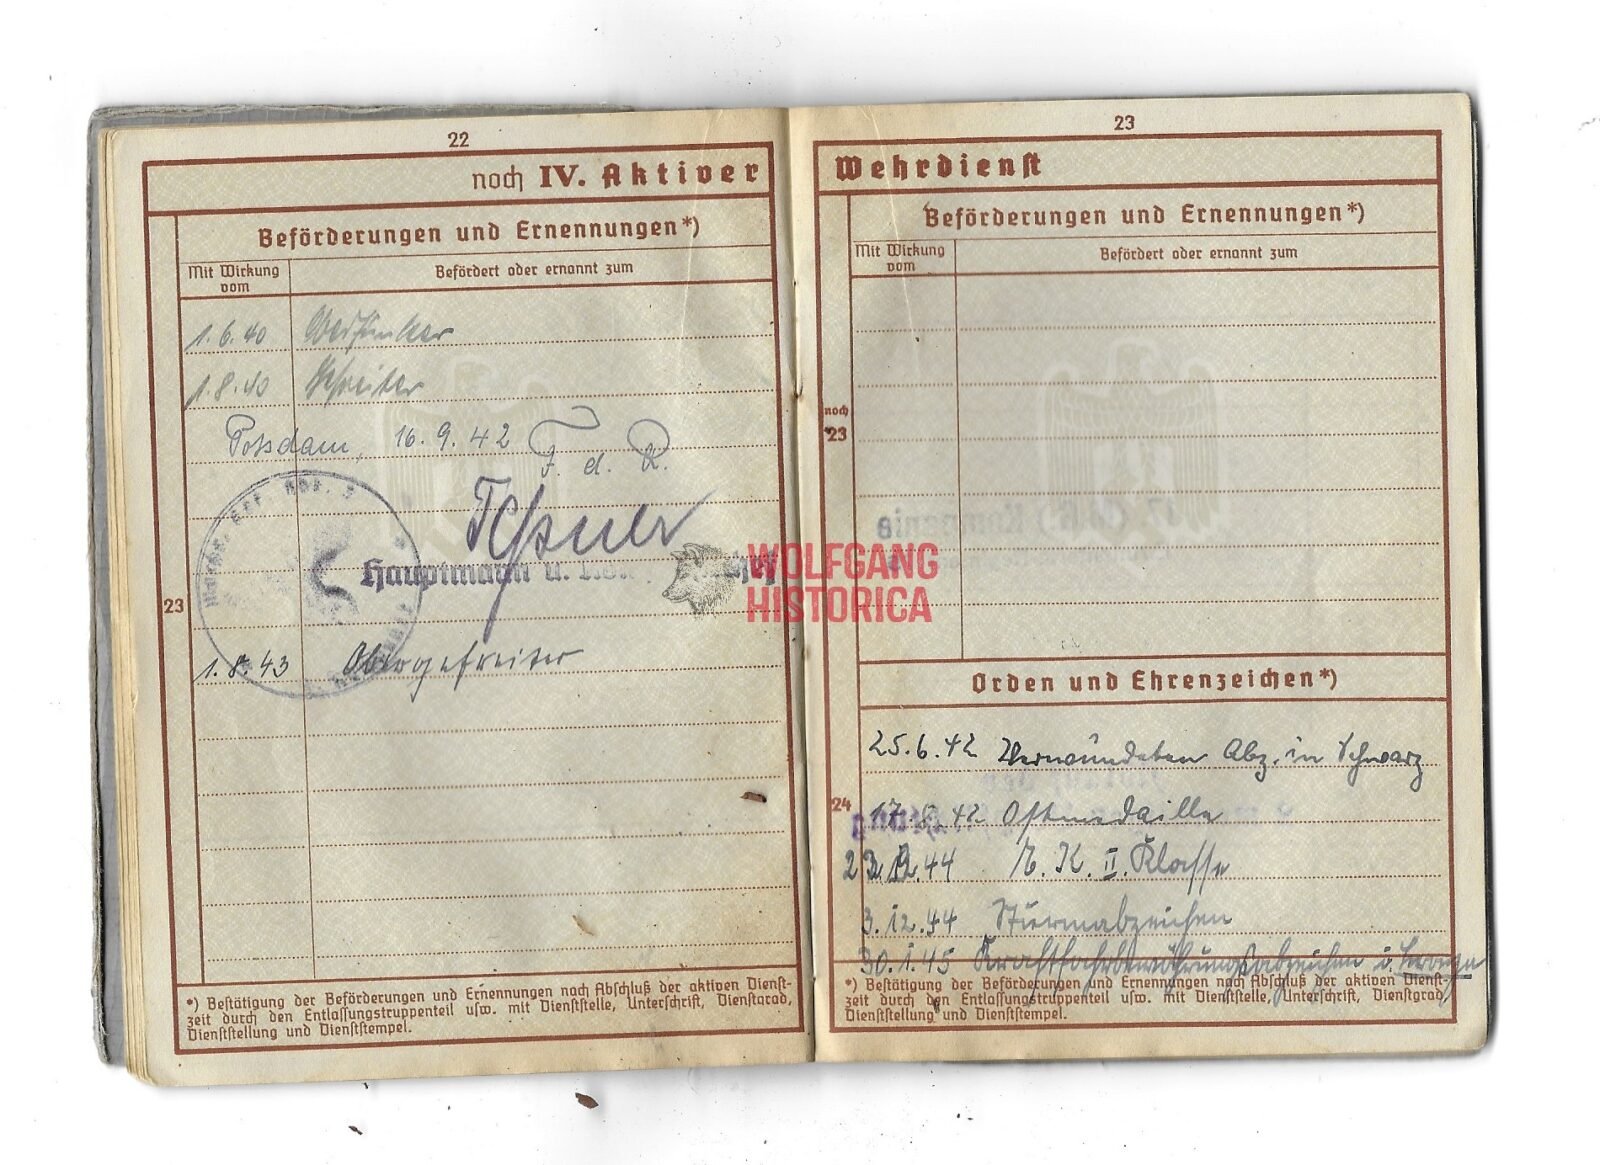 22
noch IV. Aktiver
Beförderungen und Ernennungen*)
Mit Wirkung vom
Befördert oder ernannt zum
1.6.40
1.8.40
Potsdam, 16.9.42 F. d. R.
Hauptmann u.
23
1.8.43 Obergefreiter
*) Bestätigung der Beförderungen und Ernennungen nach Abschluß der aktiven Dienst-
zeit durch den Entlassungstruppenteil usw. mit Dienststelle, Unterschrift, Dienstgrad,
Dienststellung und Dienststempel.
23
Wehrdienst
Beförderungen und Ernennungen*)
Mit Wirkung vom
Befördert oder ernannt zum
noch
23
Kompanie
WOLFGANG
HISTORICA
Orden und Ehrenzeichen*)
25.6.42 Verwundeten Abz. in Schwarz
24
42 Ostmedaille
44 K. II. Klasse
3.12.44 Sturmabzeichen
30.1.45 Kraftfahrbewährungsabzeichen i. Bronze
*) Bestätigung der Beförderungen und Ernennungen nach Abschluß der aktiven Dienst-
zeit durch den Entlassungstruppenteil usw. mit Dienststelle, Unterschrift, Dienstgrad,
Dienststellung und Dienststempel.